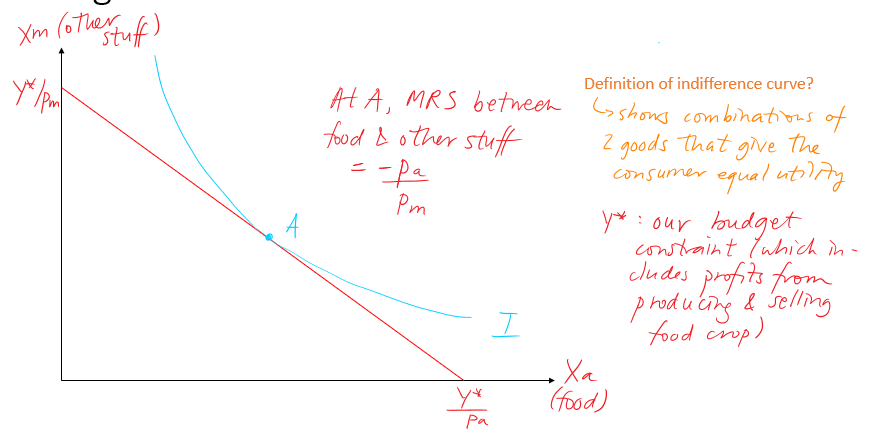 Xm (other stuff)
Y*/pm
At A, MRS between
food & other stuff
= -pa
pm
A
I
Y*
pa
Xa
(food)
Definition of indifference curve?
↳ shows combinations of
2 goods that give the
consumer equal utility
Y* : our budget
constraint (which in-
cludes profits from
producing & selling
food crop)